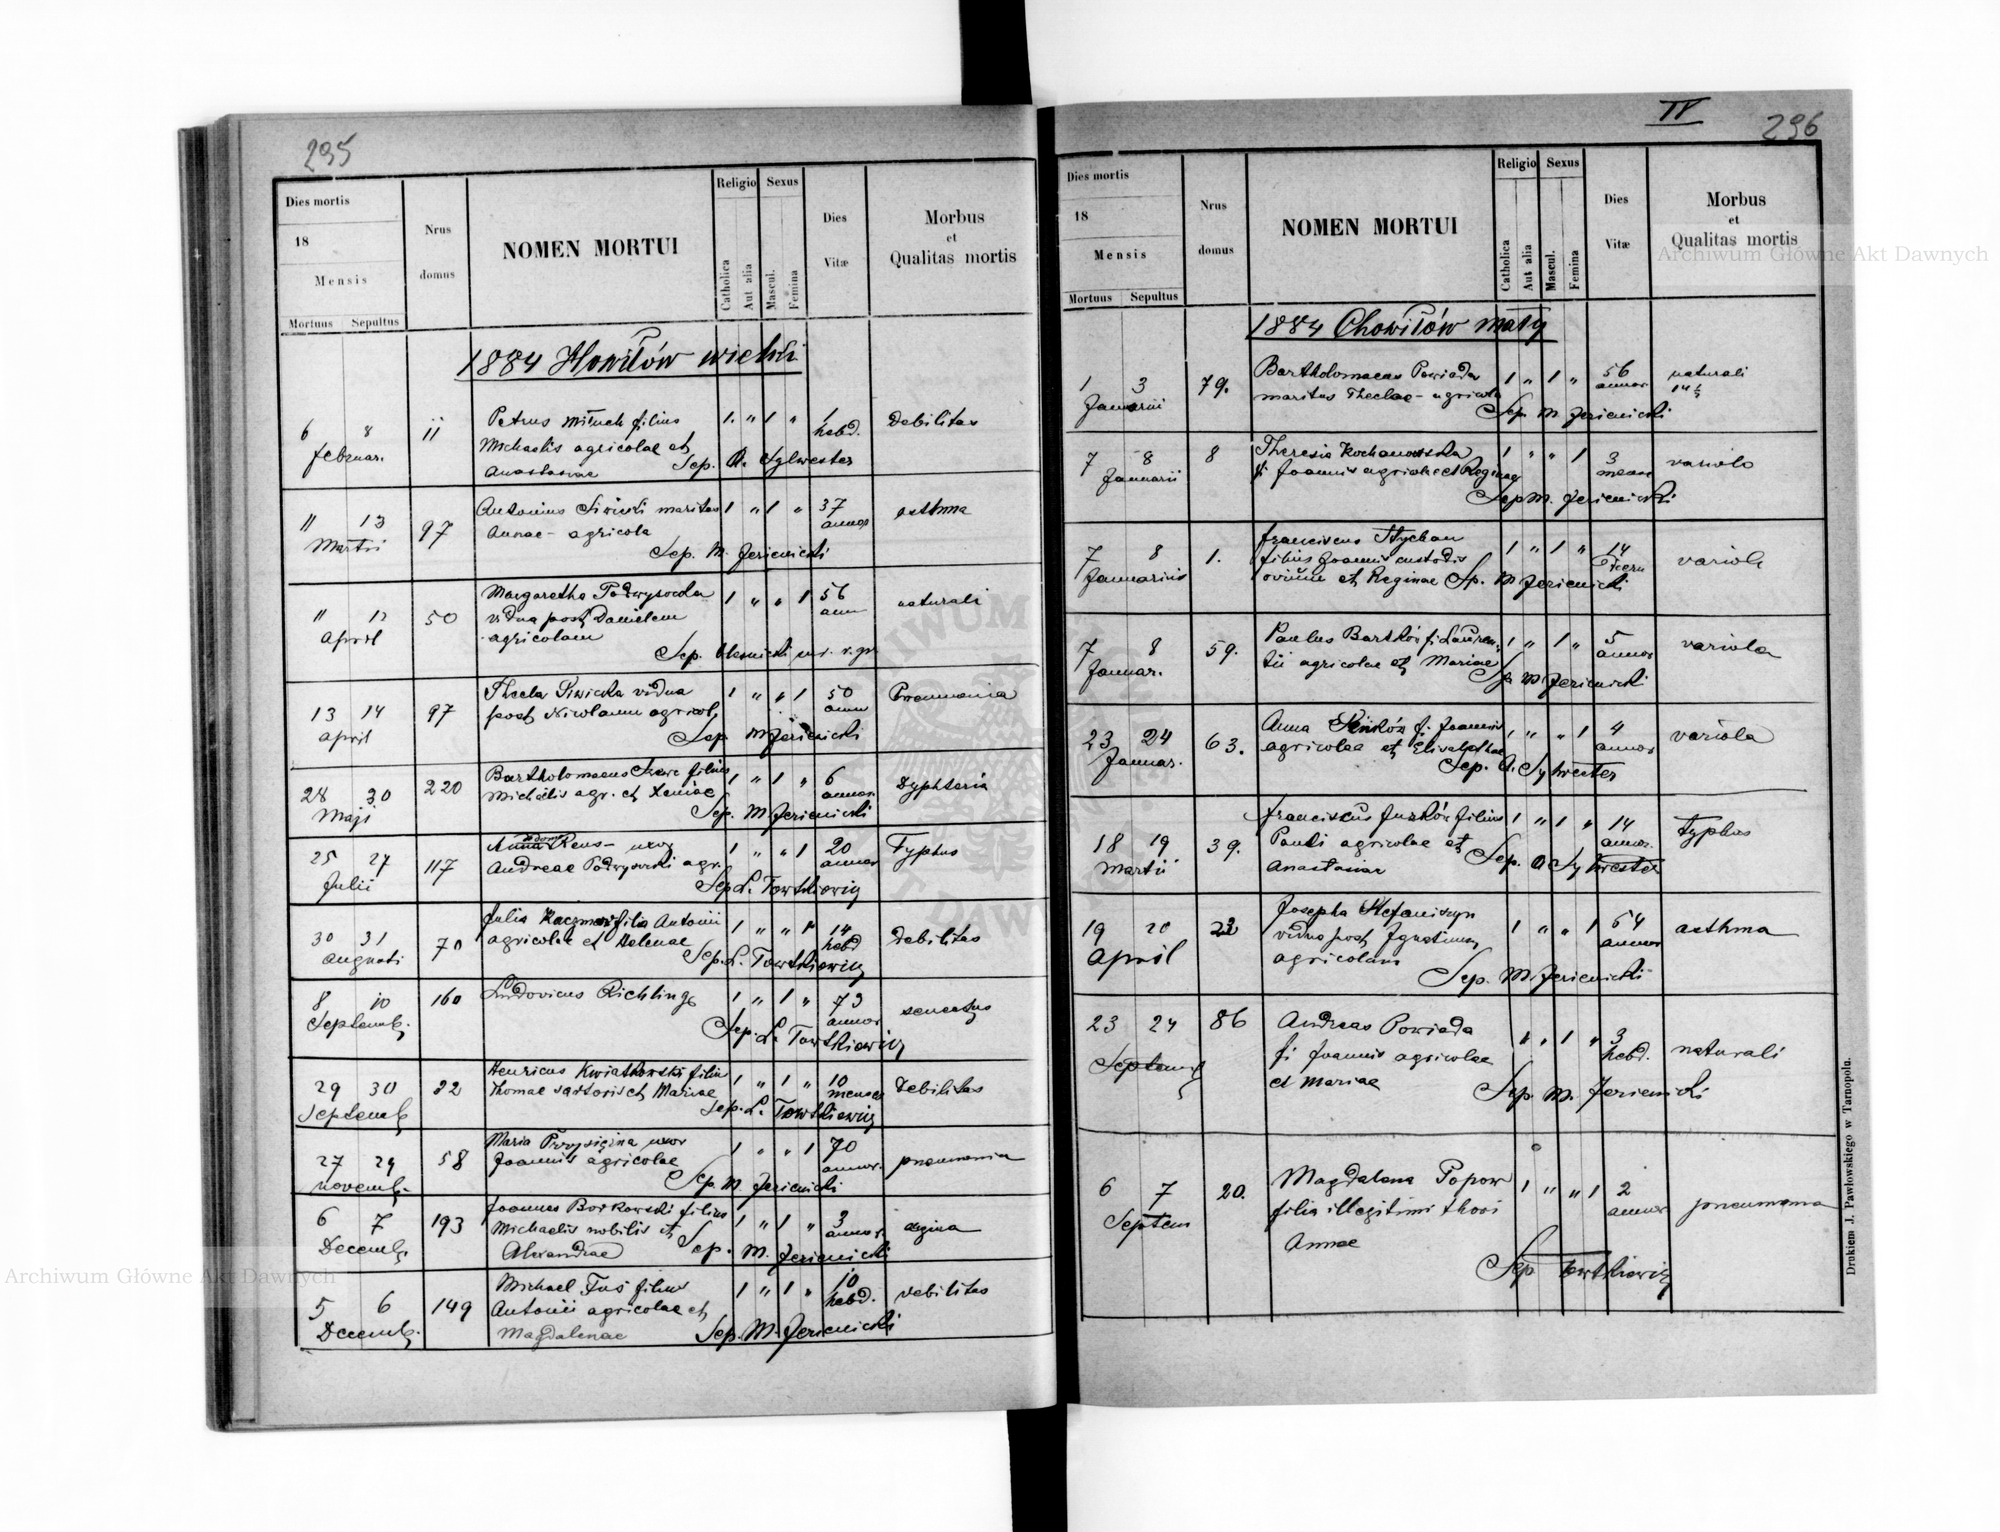 295
Dies mortis
18
Mensis
Mortuus Sepultus
Nrus
domus
NOMEN MORTUI
Religio
Catholica
Aut alia
Sexus
Mascul.
Femina
Dies
Vitæ
Morbus
et
Qualitas mortis
1884 Howiłów wielki
6 8 11 Petrus filius 1 " 1 " 1 Debilitas
februar. Michaelis agricolae et hebd.
Anastasiae Sep. A. Sylwester
11 13 97 Antonius Siwicki maritus 1 " 1 " 37 asthma
Martii Annae - agricola annor
Sep. M. Jezienicki
11 12 50 Margaretha Podwysocka 1 " " 1 56 naturali
April vidua post Danielem ann
agricolam
Sep. Olesnicki r. gr.
13 14 97 Thecla Siwicka vidua 1 " " 1 50 Pneumonia
April post Nicolaum agricol. ann
Sep M Jezienicki
28 30 220 Bartholomaeus filius 1 " 1 " 6 Dyphteria
Maji Michaelis agr. et Xeniae annor.
Sep. M Jezienicki
25 27 117 Rens - uxor 1 " " 1 20 Typhus
Julii Andreae Podwysocki agr. annor
Sep. L. Towtkiewicz
30 31 70 Julia Kaczmar filia Antonii 1 " " 1 14 Debilitas
augusti agricolae et Helenae hebd
Sep. L. Towtkiewicz
8 10 160 Ludovicus Richling 1 " 1 " 73 senectus
Septemb. annor
Sep. L. Towtkiewicz
29 30 22 Henricus Kwiatkowski filiu 1 " 1 " 10 Debilitas
Septemb Thomae sartoris et Mariae menses
Sep. L. Towtkiewicz
27 29 58 Maria uxor 1 " " 1 70 pneumonia
novemb. Joannis agricolae annor.
Sep. M. Jezienicki
6 7 193 Joannes Borkowski filius 1 " 1 " 3 angina
Decemb. Michaelis nobilis et annor
Alexandrae Sep. M. Jezienicki
5 6 149 Michael Fuś filius 1 " 1 " 10 debilitas
Decemb. Antonii agricolae et hebd.
Magdalenae Sep. M. Jezienicki
IV 296
Dies mortis
18
Mensis
Mortuus Sepultus
Nrus
domus
NOMEN MORTUI
Religio
Catholica
Aut alia
Sexus
Mascul.
Femina
Dies
Vitæ
Morbus
et
Qualitas mortis
1884 Chowiłów mały
1 3 79. Bartholomaeus Powiada 1 " 1 " 56 naturali
Januarii maritus Theclae - agricola annor
Sep. M Jezienicki
7 8 8 Theresia Kochanowska 1 " " 1 3 variola
Januarii fi Joannis agricolae et Reginae
Sep M. Jezienicki
7 8 1. Franciscus Stychan 1 " 1 " 14 variola
Januarius filius Joannis custodis dierum
ovium et Reginae Sep. M Jezienicki
7 8 59. Paulus Bartków f. Lauren 1 " 1 " 5 variola
Januar. tii agricolae et Mariae annor
Sep M Jezienicki
23 24 63. Anna f. Joannis 1 " " 1 4 variola
Januar. agricolae et Elisabethae annor
Sep. A. Sylwester
18 19 39. Franciscus Jurków filius 1 " 1 " 14 Typhus
Martii Pauli agricolae et annor.
Anastasiae Sep. A Sylwester
19 20 22 Josepha Stefaniszyn 1 " " 1 64 asthma
April vidua post Ignatium annor
agricolam
Sep. M. Jezienicki
23 24 86 Andreas Powiada 1 " 1 " 3 naturali
Septemb fi Joannis agricolae hebd.
et Mariae
Sep. M. Jezienicki
6 7 20. Magdalena Popow 1 " " 1 2 pneumonia
Septem filia illegitimi thori annor
Annae
Sep. Towtkiewicz
Drukiem J. Pawłowskiego w Tarnopolu.
Archiwum Główne Akt Dawnych
Archiwum Główne Akt Dawnych